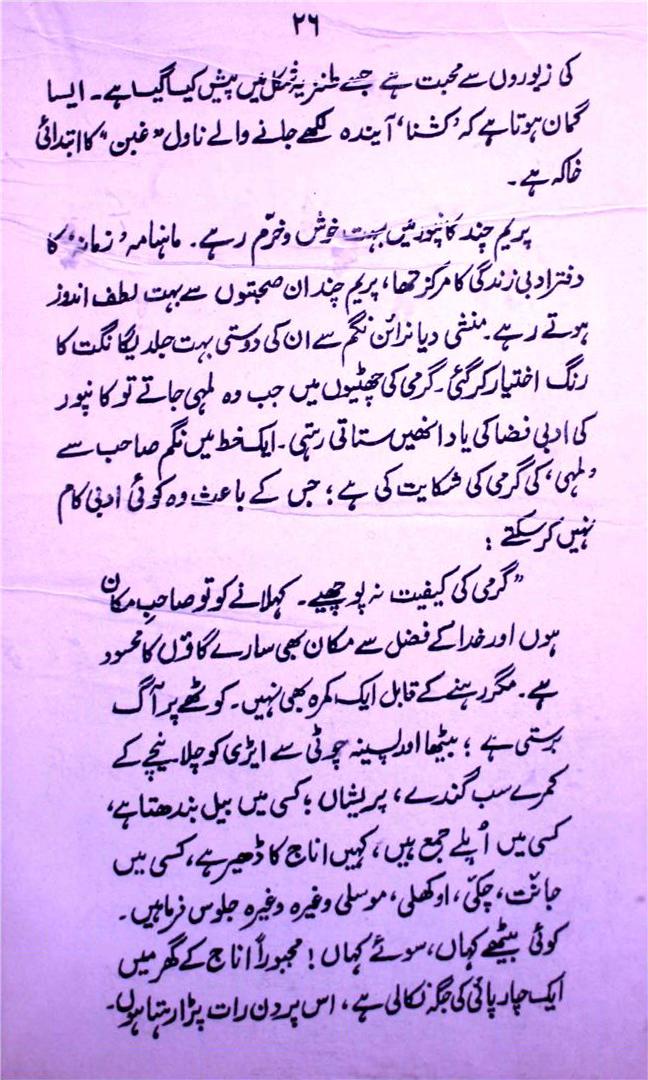 ۲۶
کی زیوروں سے محبت ہے جسے طنزیہ شکل میں پیش کیا گیا ہے۔ ایسا
گمان ہوتا ہے کہ ’کشنا‘ آیندہ لکھے جانے والے ناول ”غبن“ کا ابتدائی
خاکہ ہے۔
پریم چند کانپور میں بہت خوش و خرّم رہے۔ ماہنامہ ’زمانہ‘ کا
دفتر ادبی زندگی کا مرکز تھا، پریم چند ان صحبتوں سے بہت لطف اندوز
ہوتے رہے۔ منشی دیا نرائن نگم سے ان کی دوستی بہت جلد یگانگت کا
رنگ اختیار کر گئی۔ گرمی کی چھٹیوں میں جب وہ لمہی جاتے تو کانپور
کی ادبی فضا کی یاد انھیں ستاتی رہتی۔ ایک خط میں نگم صاحب سے
’لمہی‘ کی گرمی کی شکایت کی ہے؛ جس کے باعث وہ کوئی ادبی کام
نہیں کر سکتے:
”گرمی کی کیفیت نہ پوچھیے۔ کہلانے کو تو صاحبِ مکان
ہوں اور خدا کے فضل سے مکان بھی سارے گاؤں کا محسود
ہے۔ مگر رہنے کے قابل ایک کمرہ بھی نہیں۔ کوٹھے پر آگ
برستی ہے؛ بیٹھا اور پسینہ چوٹی سے ایڑی کو چلا نیچے کے
کمرے سب گندے، پریشاں؛ کسی میں بیل بندھتا ہے،
کسی میں اُپلے جمع ہیں، کہیں اناج کا ڈھیر ہے، کسی میں
جانت، چکّی، اوکھلی، موسلی وغیرہ وغیرہ جلوس فرما ہیں۔
کوئی بیٹھے کہاں، سوئے کہاں! مجبوراً اناج کے گھر میں
ایک چارپائی کی جگہ نکالی ہے، اس پر دن رات پڑا رہتا ہوں۔